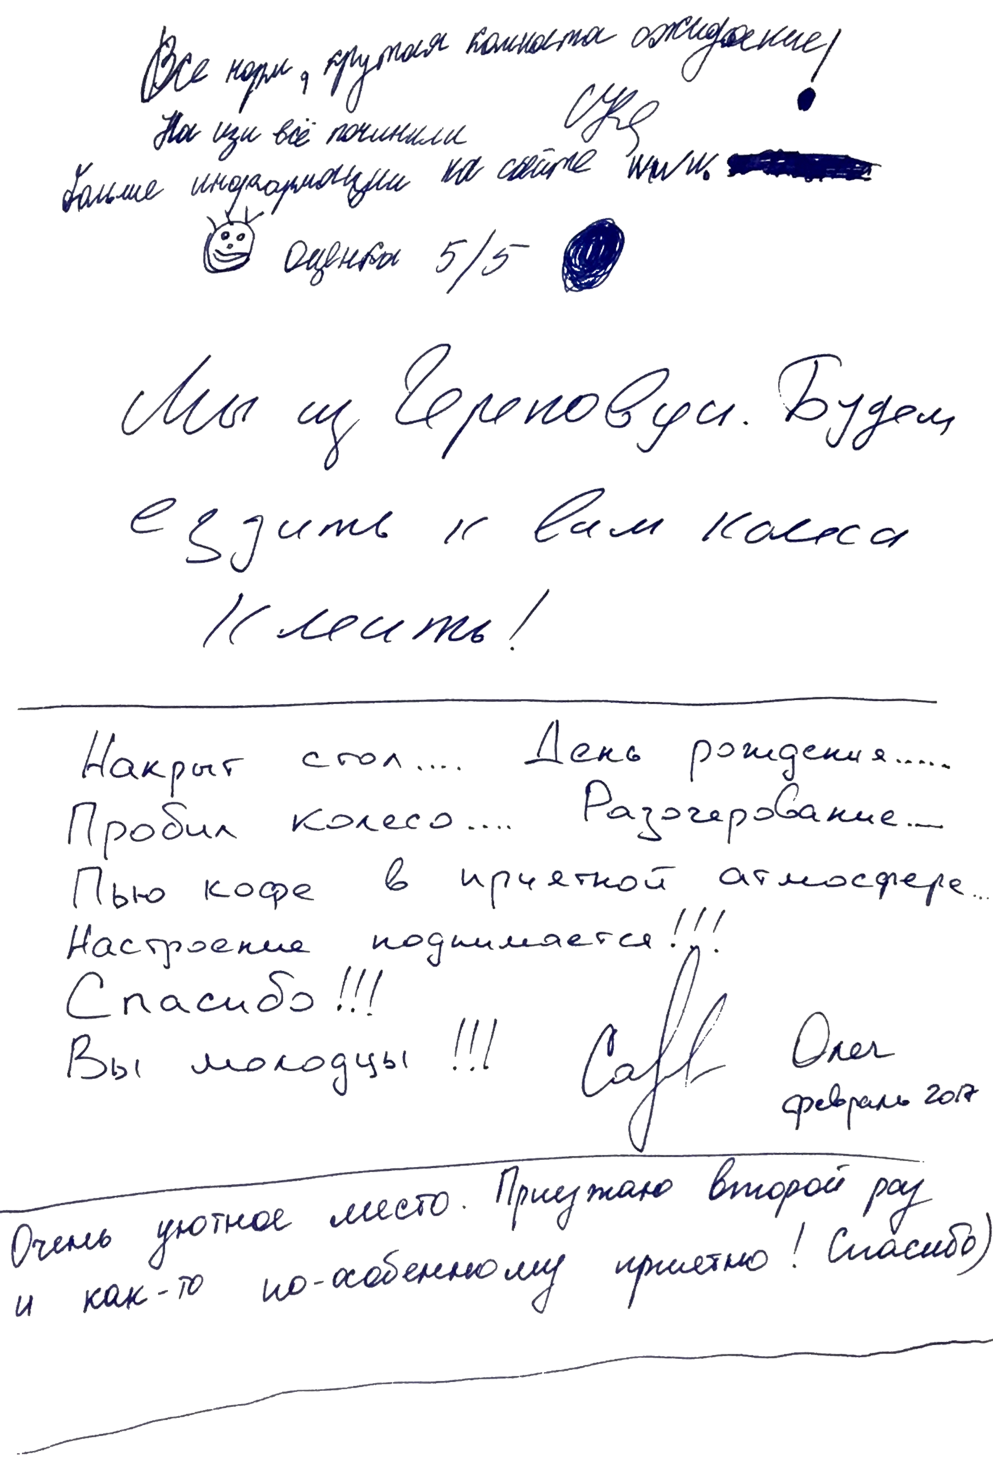 Все норм, крутая комната ожидание!
На изи всё починили
Больше информации на сайте www.
оценка 5/5
Мы из Череповца. Будем
ездить к вам колеса
клеить!
Накрыт стол.... День рождения.....
Пробил колесо.... Разочерование...
Пью кофе в приятной атмосфере...
Настроение поднимается!!!
Спасибо!!!
Вы молодцы!!!
Олег
февраль 2017
Очень уютное место. Приезжаю второй раз
и как-то по-особенному приятно! Спасибо)